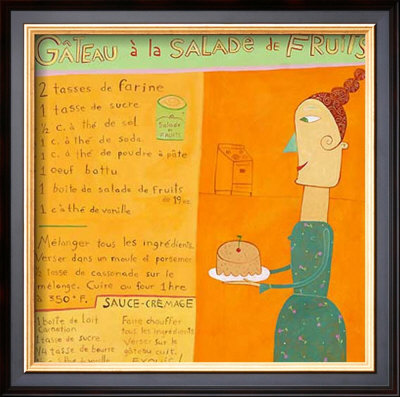 GÂTEAU à la SALADE de FRUITS
2 tasses de farine
1 tasse de sucre
½ c. à thé de sel
1 c. à thé de soda
1 c. à thé de poudre à pâte
1 oeuf battu
1 boîte de salade de fruits
de 19 oz.
1 c. à thé de vanille
Salade de FRUITS
Mélanger tous les ingrédients.
Verser dans un moule et parsemer
½ tasse de cassonade sur le
mélange. Cuire au four 1 hre
à 350° F.
SAUCE-CRÉMAGE
1 boîte de lait
Carnation
1 tasse de sucre
¼ tasse de beurre
à thé vanille
Faire chauffer
tous les ingrédients
Verser sur le
gâteau cuit.
EXQUIS!